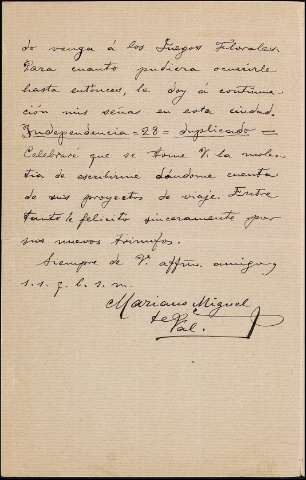 do venga á los Juegos Florales.
Para cuanto pudiera ocurrirle
hasta entonces, le doy á continua-
ción mis señas en esta ciudad.
Independencia = 28 = duplicado =
Celebraré que se tome V. la moles-
tia de escribirme dándome cuenta
de sus proyectos de viaje. Entre
tanto le felicito sinceramente por
sus nuevos triunfos.
Siempre de V. affmo. amigo y
s. s. q. b. s. m.
Mariano Miguel
de Val.